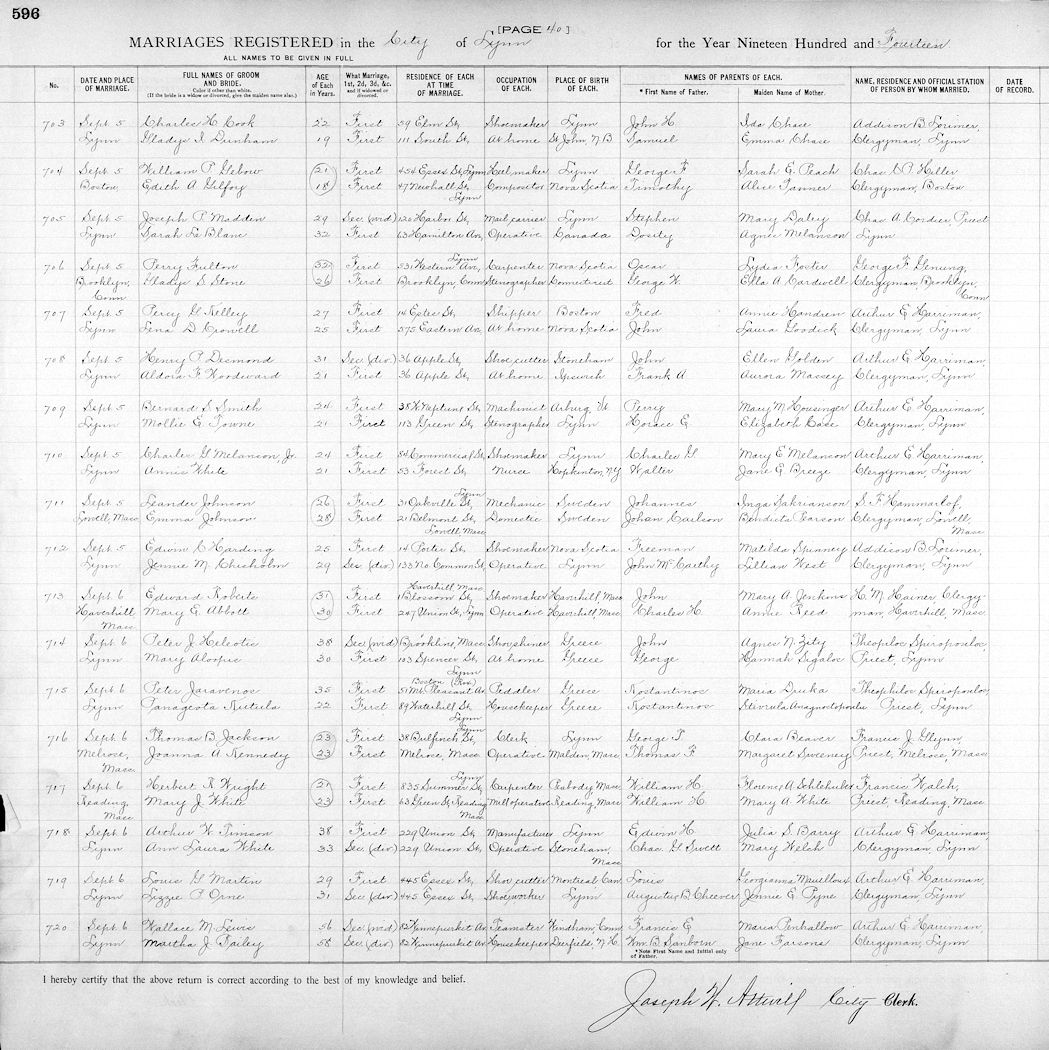 596
[PAGE 40]
MARRIAGES REGISTERED in the City of Lynn for the Year Nineteen Hundred and Fourteen
ALL NAMES TO BE GIVEN IN FULL
No. DATE AND PLACE OF MARRIAGE. FULL NAMES OF GROOM AND BRIDE. Color if other than white. (If the bride is a widow or divorced, give the maiden name also.) AGE of Each in Years. What Marriage, 1st, 2d, 3d, &c. and if widowed or divorced. RESIDENCE OF EACH AT TIME OF MARRIAGE. OCCUPATION OF EACH. PLACE OF BIRTH OF EACH. NAMES OF PARENTS OF EACH. * First Name of Father. Maiden Name of Mother. NAME, RESIDENCE AND OFFICIAL STATION OF PERSON BY WHOM MARRIED. DATE OF RECORD.
703 Sept. 5 Charles H. Cook 22 First 59 Elm St, Shoemaker Lynn John H Ida Chase Addison B. Lorimer,
Lynn Gladys I. Dunham 19 First 111 South St, At home St John, N B Samuel Emma Chase Clergyman, Lynn
704 Sept. 5 William P. Gebow 21 First 454 Essex St, Lynn Heelmaker Lynn George F Sarah E. Peach Chas. L. P. Heller
Boston Edith A Gilfoy 18 First 47 Newhall St, Lynn Compositor Nova Scotia Timothy Alice Tanner Clergyman, Boston
705 Sept. 5 Joseph P. Madden 29 Sec (wid) 120 Harbor St, Mail carrier Lynn Stephen Mary Daley Chas. A. Cordier, Priest
Lynn Sarah Le Blanc 32 First 63 Hamilton Av, Operative Canada Dosity Agnes Melanson Lynn
706 Sept. 5 Perry Fulton 32 First 531 Western Av, Lynn Carpenter Nova Scotia Oscar Lydia Foster George F. Genung,
Brooklyn, Conn Gladys S. Stone 26 First Brooklyn, Conn Stenographer Connecticut George W. Ella A. Cardwell Clergyman, Brooklyn, Conn
707 Sept. 5 Percy G. Kelley 27 First 14 Estes St, Shipper Boston Fred Annie Handren Arthur E. Harriman,
Lynn Lena D. Crowell 25 First 375 Eastern Av, At home Nova Scotia John Laura Goodick Clergyman, Lynn
708 Sept. 5 Henry P. Desmond 31 Sec (div) 36 Apple St, Shoe cutter Stoneham John Ellen Golden Arthur E. Harriman,
Lynn Aldora F. Woodward 21 First 36 Apple St, At home Ipswich Frank A Aurora Massey Clergyman, Lynn
709 Sept. 5 Bernard S. Smith 24 First 38 W. Neptune St, Machinist Perry Mary M Housinger Arthur E. Harriman,
Lynn Mollie E. Towne 21 First 113 Green St, Stenographer Lynn Horace E Elizabeth Case Clergyman, Lynn
710 Sept. 5 Charles G. Melanson, Jr. 24 First 54 Commercial St, Shoemaker Lynn Charles G Mary E. Melanson Arthur E. Harriman,
Lynn Annie White 21 First 53 Forest St, Nurse Hopkinton, N.Y. Walter Jane E. Breeze Clergyman, Lynn
711 Sept. 5 Leander Johnson 26 First 31 Oakville St, Lynn Mechanic Sweden Johannes Inga Sakrianson S. F. Hammarlof,
Lowell, Mass Emma Johnson 28 First 21 Belmont St, Lowell Mass Domestic Sweden Johan Carlson Bendicta Larson Clergyman, Lowell, Mass
712 Sept. 5 Edwin C. Harding 25 First 14 Porter St, Shoemaker Nova Scotia Freeman Matilda Spinney Addison B. Lorimer,
Lynn Jennie M. Chisholm 29 Sec (div) 135 No. Common St, Operative Lynn John McCarthy Lillian West Clergyman, Lynn
713 Sept. 6 Edward Roberts 31 First Haverhill Mass Blossom St, Shoemaker Haverhill, Mass John Mary A. Jenkins H. M. Hainer Clergy-
Haverhill Mass Mary E. Abbott 30 First 207 Union St, Lynn Operative Haverhill, Mass Charles H. Annie Reed man, Haverhill, Mass
714 Sept. 6 Peter J. Heliotis 38 Sec (wid) Brookline, Mass Shoe shiner Greece John Agnes N. Zity Theopilos Spiropoulos,
Lynn Mary Alopis 30 First 103 Spencer St, Lynn At home Greece George Hannah Sigalos Priest, Lynn
715 Sept. 6 Peter Jaravenos 35 First Boston (Rox) 51 Mt. Pleasant Av Peddler Greece Kostantinos Maria Druka Theophilos Spiropoulos
Lynn Panageota Kutula 22 First 89 Waterhill St, Lynn Housekeeper Greece Kostantinos Stavrula Anagnostopoulu Priest, Lynn
716 Sept. 6 Thomas B. Jackson 23 First 38 Bulfinch St, Lynn Clerk Lynn George T Clara Beaver Francis J. Glynn,
Melrose, Mass Joanna A. Kennedy 23 First Melrose, Mass Operative Malden, Mass Thomas F Margaret Sweeney Priest, Melrose, Mass
717 Sept. 6 Herbert R. Wright 21 First 835 Summer St, Lynn Carpenter Peabody, Mass William H. Florence A. Francis Walsh,
Reading, Mass Mary J. White 23 First 63 Green St, Reading Mass Mill operative Reading, Mass William H Mary A. White Priest, Reading, Mass
718 Sept. 6 Arthur W. Timson 38 First 229 Union St, Manufacturer Lynn Edwin H Julia S. Barry Arthur E. Harriman,
Lynn Ann Laura White 33 Sec (div) 229 Union St, Operative Stoneham, Mass Chas. G. Swett Mary Welch Clergyman, Lynn
719 Sept. 6 Louis G. Martin 29 First 445 Essex St, Shoe cutter Montreal Can. Louis Georgianna Mauilloux Arthur E. Harriman,
Lynn Lizzie P. Orne 31 Sec (div) 445 Essex St, Shoeworker Lynn Augustus B Cheever Jennie E. Pyne Clergyman, Lynn
720 Sept. 6 Wallace M. Lewis 56 Sec (wid) 82 Wenepurket Av Teamster Windham, Conn Francis E Maria Penhallow Arthur E. Harriman,
Lynn Martha J. Bailey 58 Sec (div) 82 Wenepurket Av Housekeeper Deerfield, N.H. Wm. B. Sanborn Jane Parsons Clergyman, Lynn
* Note First Name and Initial only of Father.
I hereby certify that the above return is correct according to the best of my knowledge and belief.
Joseph W. Attwill City Clerk.